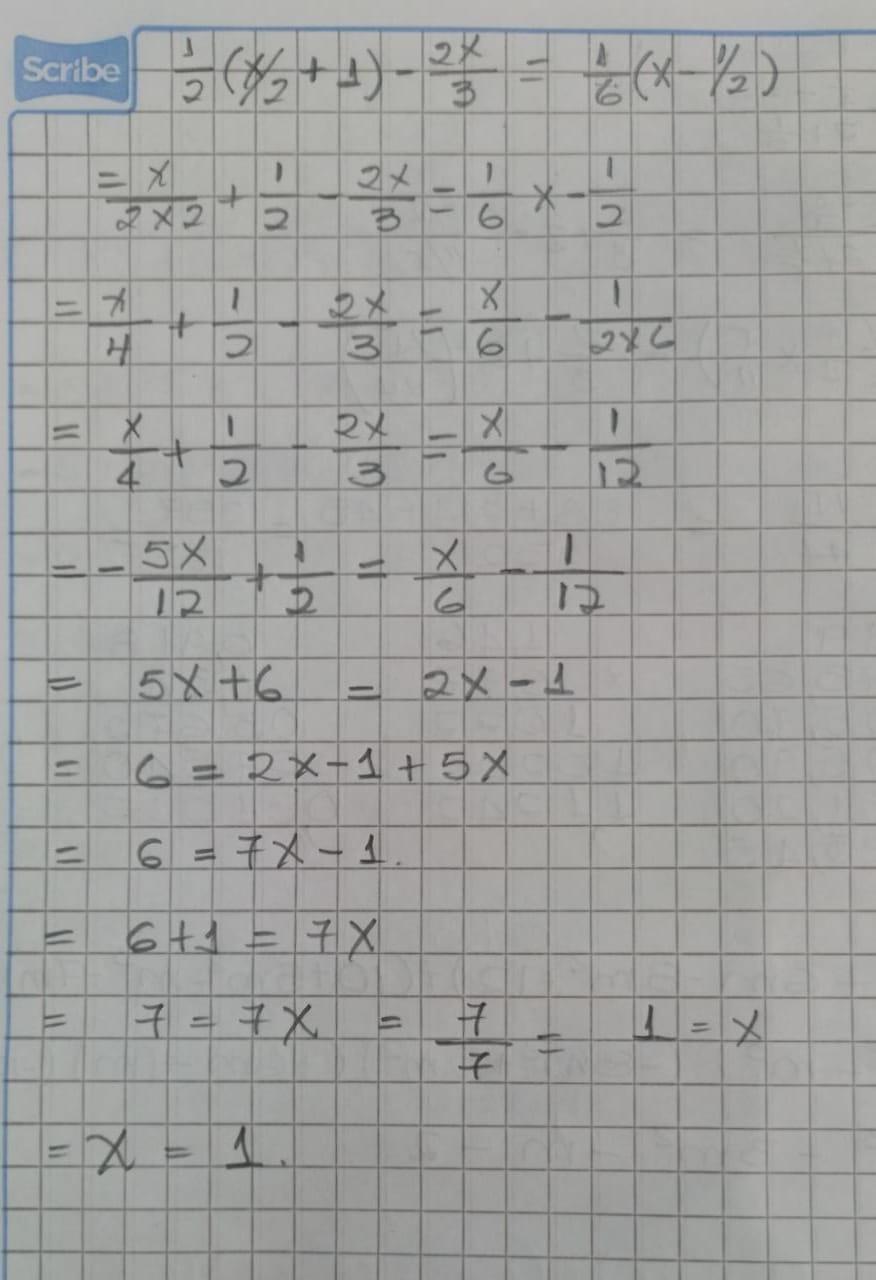 Scribe
1/2 (x/2 + 1) - 2x/3 = 1/6 (x - 1/2)
= x/2×2 + 1/2 - 2x/3 = 1/6 x - 1/2
= x/4 + 1/2 - 2x/3 = x/6 - 1/2×6
= x/4 + 1/2 - 2x/3 = x/6 - 1/12
= - 5x/12 + 1/2 = x/6 - 1/12
= 5x + 6 = 2x - 1
= 6 = 2x - 1 + 5x
= 6 = 7x - 1.
= 6 + 1 = 7x
= 7 = 7x = 7/7 = 1 = x
= x = 1.